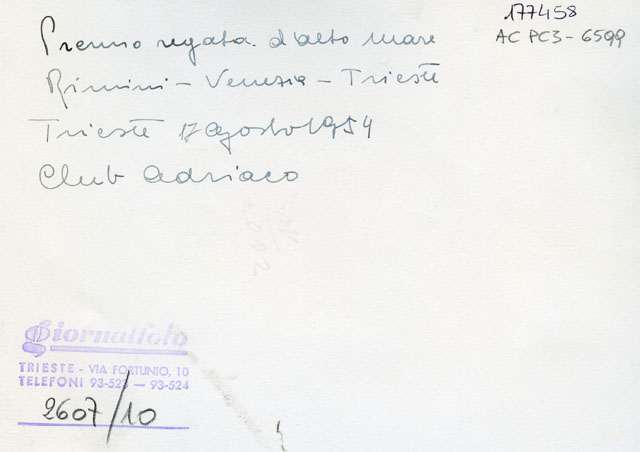 177458
AC PC3-6599
Premio regata d'alto mare
Rimini - Venezia - Trieste
Trieste 17 agosto 1954
Club Adriaco
Giornalfoto
TRIESTE - VIA FORTUNIO, 10
TELEFONI 93-523 — 93-524
2607/10